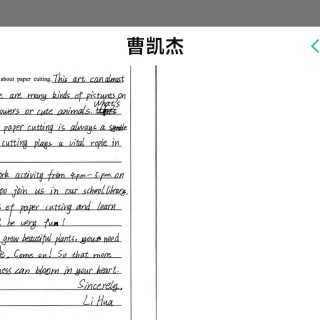 曹凯杰
about paper cutting. This art can almost
e are many kinds of pictures on
owers or cute animals. what's
paper cutting is always a symble
cutting plays a vital rople in
ork activity from 4pm-5pm on
to join us in our school library.
s of paper cutting and learn
l be very fun!
grow beautiful plants, your need
e. Come on! So that more
ness can bloom in your heart.
Sincerely,
Li Hua